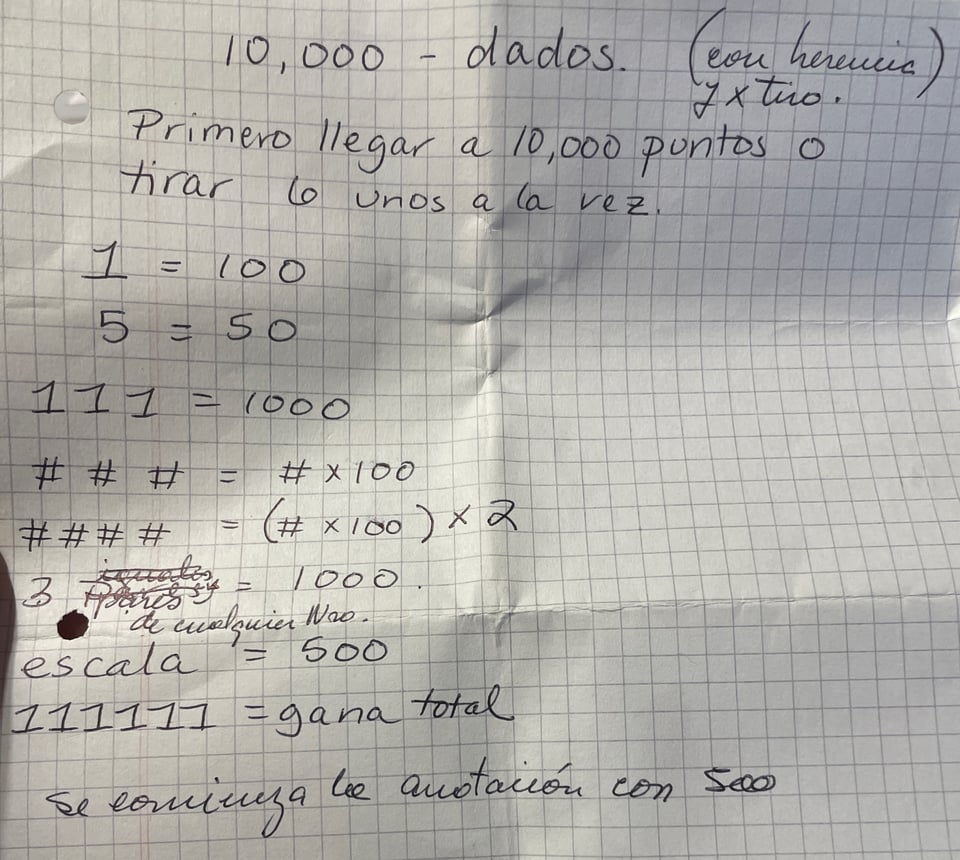 10,000 - dados. (con herencia)
y x tiro.
Primero llegar a 10,000 puntos o
tirar 6 unos a la vez.
1 = 100
5 = 50
111 = 1000
# # # = # x 100
# # # # = (# x 100) x 2
3 = 1000.
de cualquier Nro.
escala = 500
111111 = gana total
Se comienza la anotación con 500